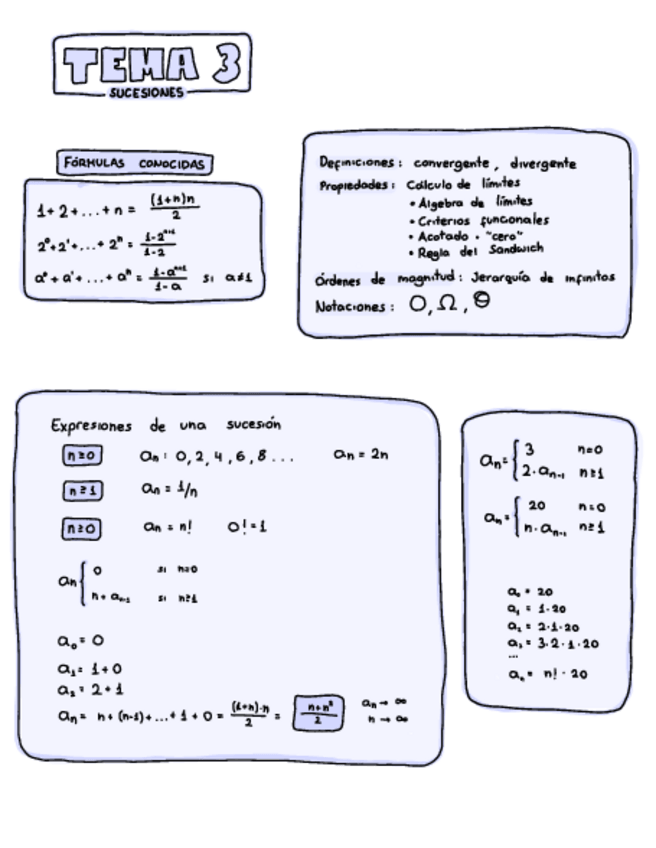 TEMA 3
SUCESIONES
FÓRMULAS CONOCIDAS
1+2+...+n = (1+n)n/2
2⁰+2¹+...+2ⁿ = 1-2ⁿ⁺¹/1-2
a⁰+a¹+...+aⁿ = 1-aⁿ⁺¹/1-a si a≠1
Definiciones: convergente, divergente
Propiedades: Cálculo de límites
• Álgebra de límites
• Criterios funcionales
• Acotado · "cero"
• Regla del Sandwich
Órdenes de magnitud: Jerarquía de infinitos
Notaciones: O, Ω, Θ
Expresiones de una sucesión
n≥0 an: 0, 2, 4, 6, 8 ... an = 2n
n≥1 an = 1/n
n≥0 an = n! 0! = 1
an { 0 si n=0
n+an-1 si n≥1
a₀ = 0
a₁ = 1+0
a₂ = 2+1
an = n+(n-1)+...+1+0 = (1+n)·n/2 = n+n²/2 an → ∞
n → ∞
an = { 3 n=0
2·an-1 n≥1
an = { 20 n=0
n·an-1 n≥1
a₀ = 20
a₁ = 1·20
a₂ = 2·1·20
a₃ = 3·2·1·20
...
an = n!·20